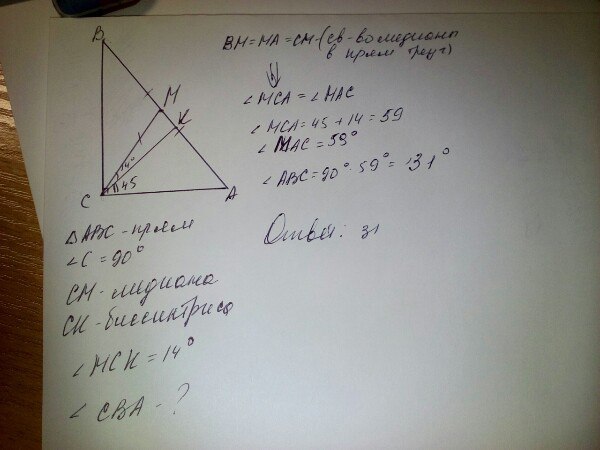 B
M
K
14°
45
C
A
BM = MA = CM - (св-во медианы
в прям треуг)
⇓
∠MCA = ∠MAC
∠MCA = 45 + 14 = 59
∠MAC = 59°
∠ABC = 90° - 59° = 31°
Ответ: 31
△ABC - прям
∠C = 90°
CM - медиана
CK - биссинтриса
∠MCK = 14°
∠CBA - ?